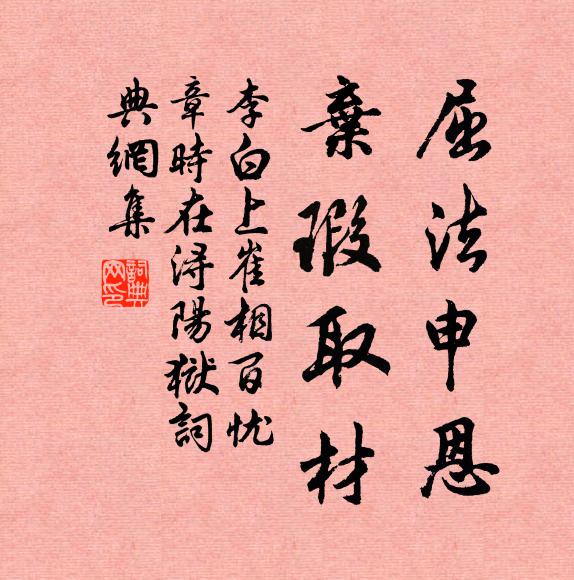 屈法申恩
棄瑕取材
李白上崔相百忧
章時在浔陽獄詞
典網集
詞典
网印